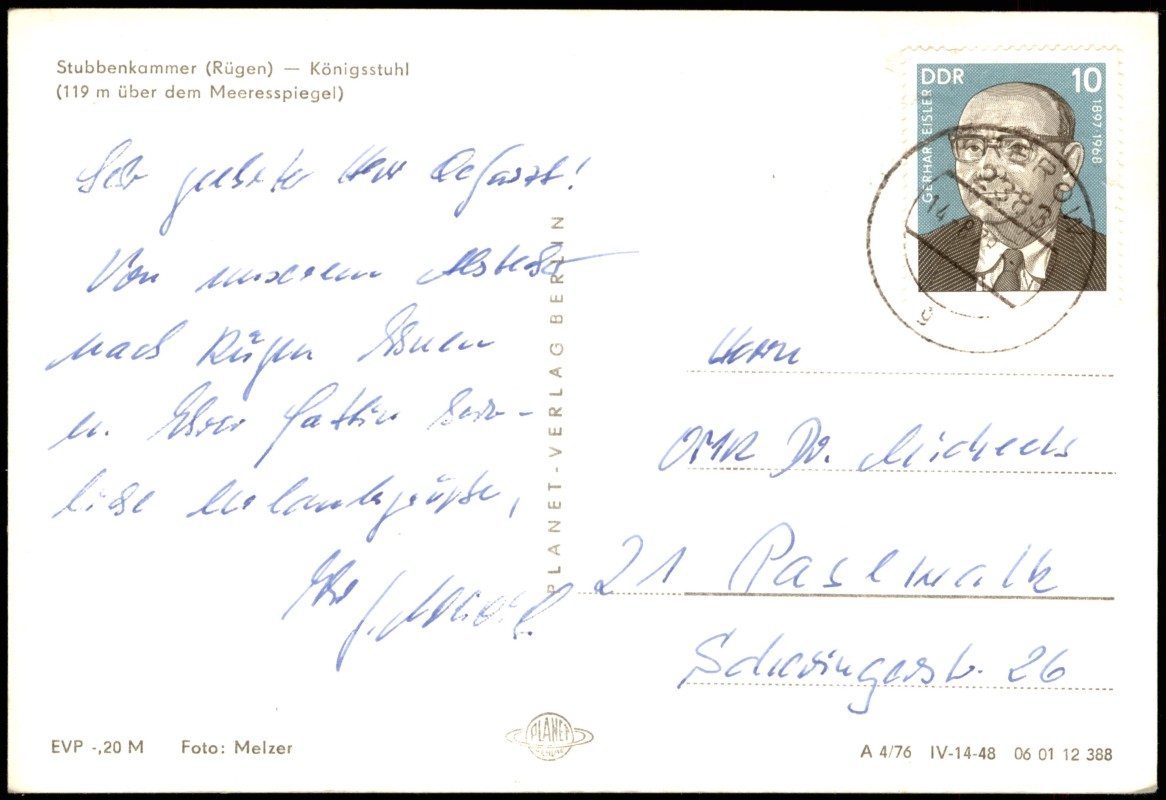 Stubbenkammer (Rügen) — Königsstuhl
(119 m über dem Meeresspiegel)
Sehr geehrter Herr Chefarzt!
Von unserem Abstecher
nach Rügen Ihnen
u. Ihrer Gattin herz-
liche Urlaubsgrüße,
Ihr
PLANET-VERLAG BERLIN
DDR 10
GERHART EISLER
1897-1968
Herrn
OMR Dr. Micheels
21 Pasewalk
Scheringerstr. 26
EVP -,20 M Foto: Melzer
PLANET
A 4/76 IV-14-48 06 01 12 388